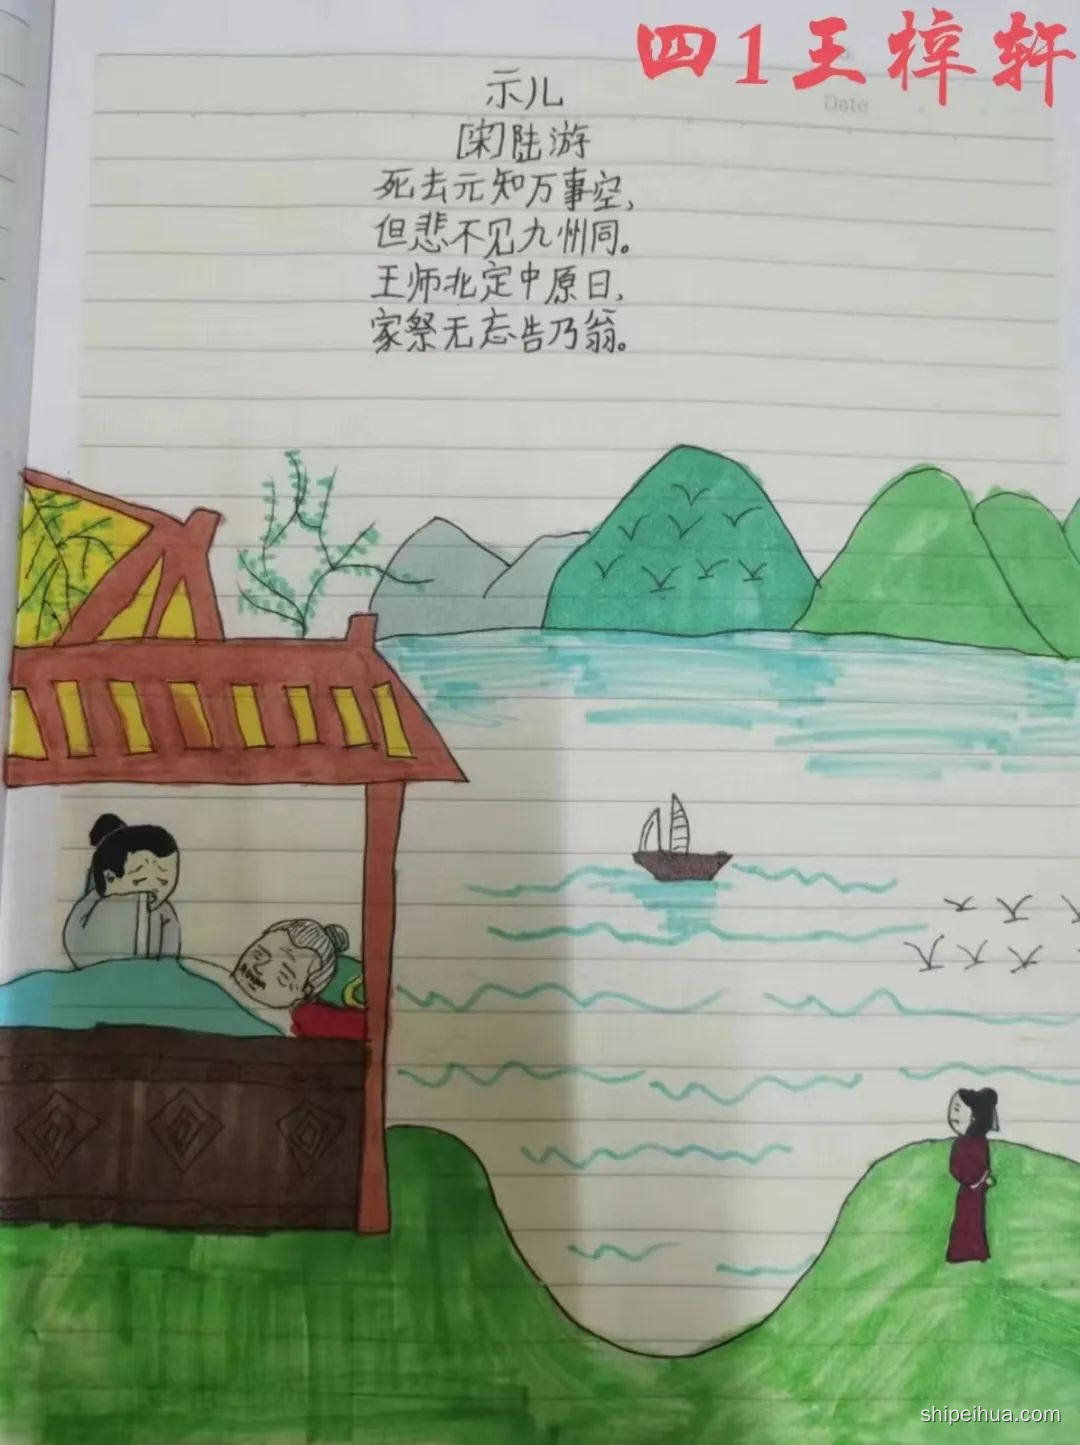 四1王梓轩
Date
示儿
[宋]陆游
死去元知万事空，
但悲不见九州同。
王师北定中原日，
家祭无忘告乃翁。
shipeihua.com